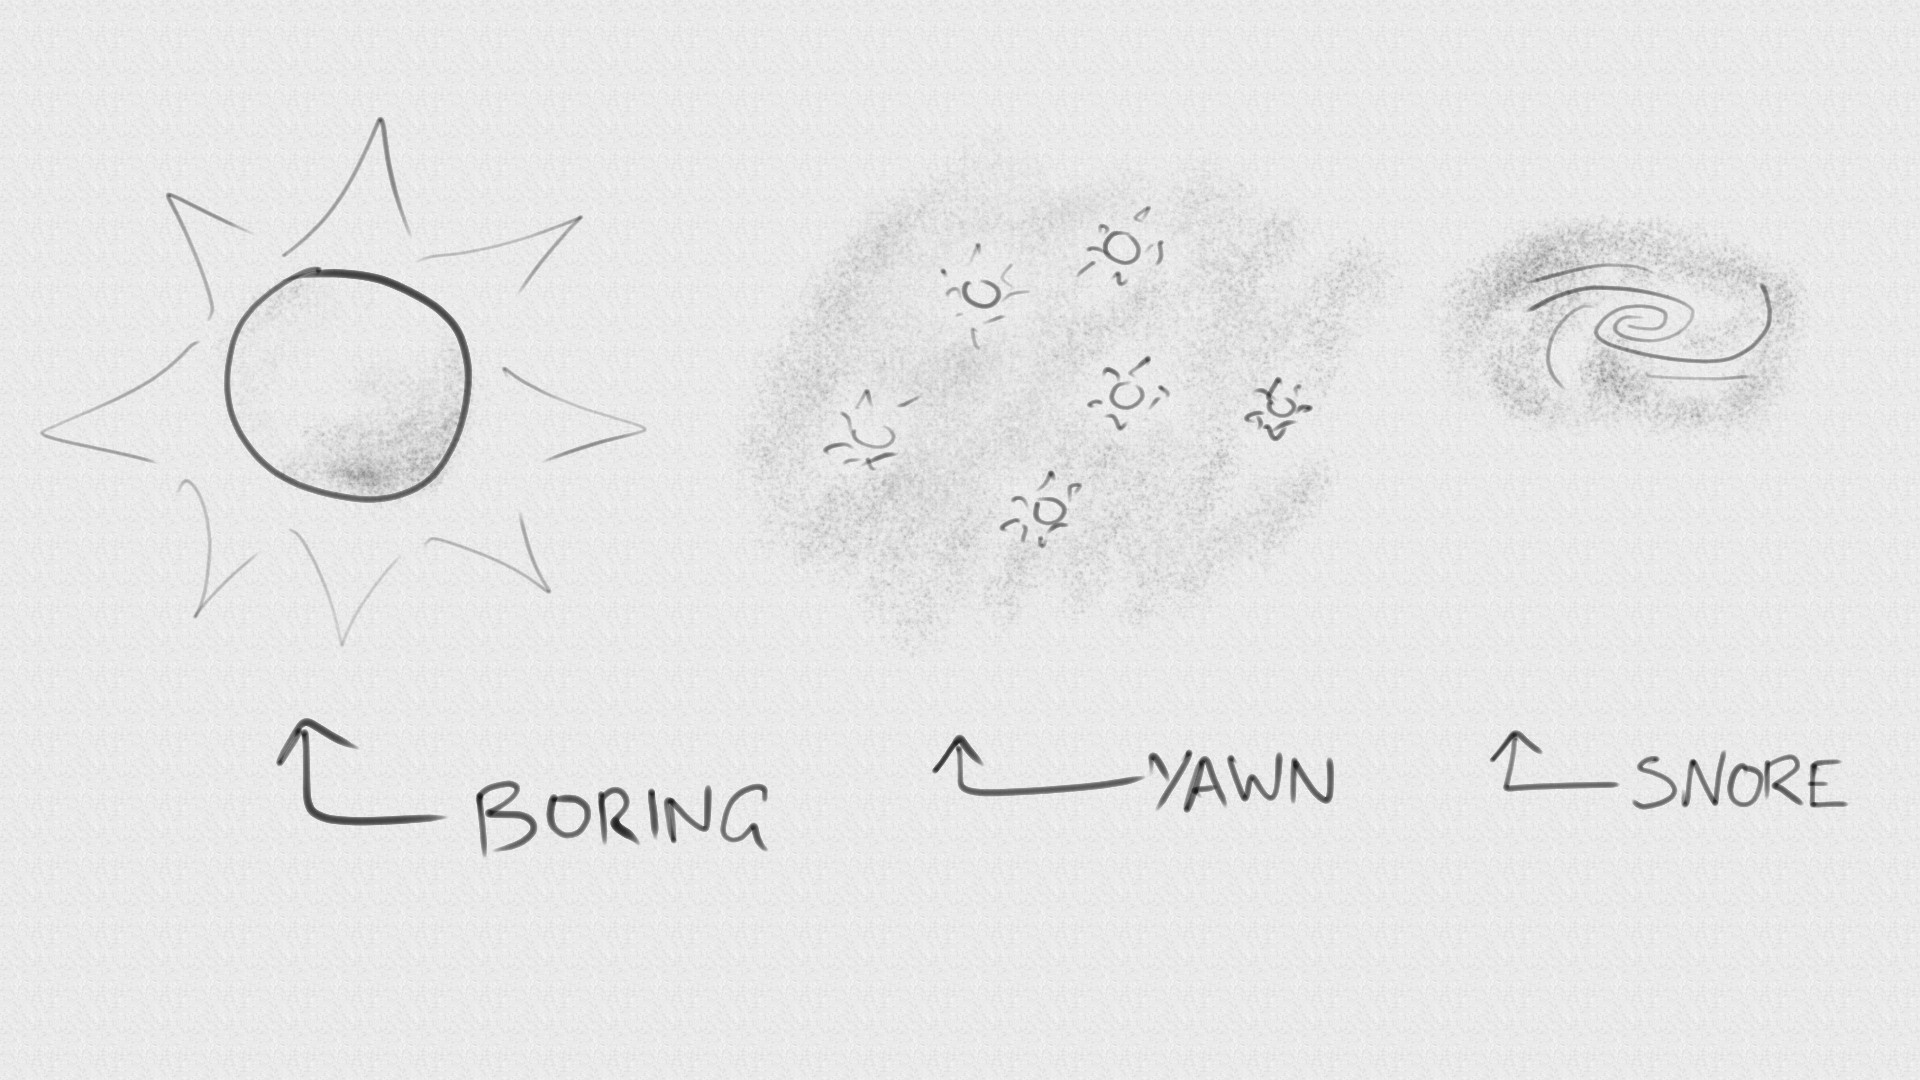 BORING
YAWN
SNORE